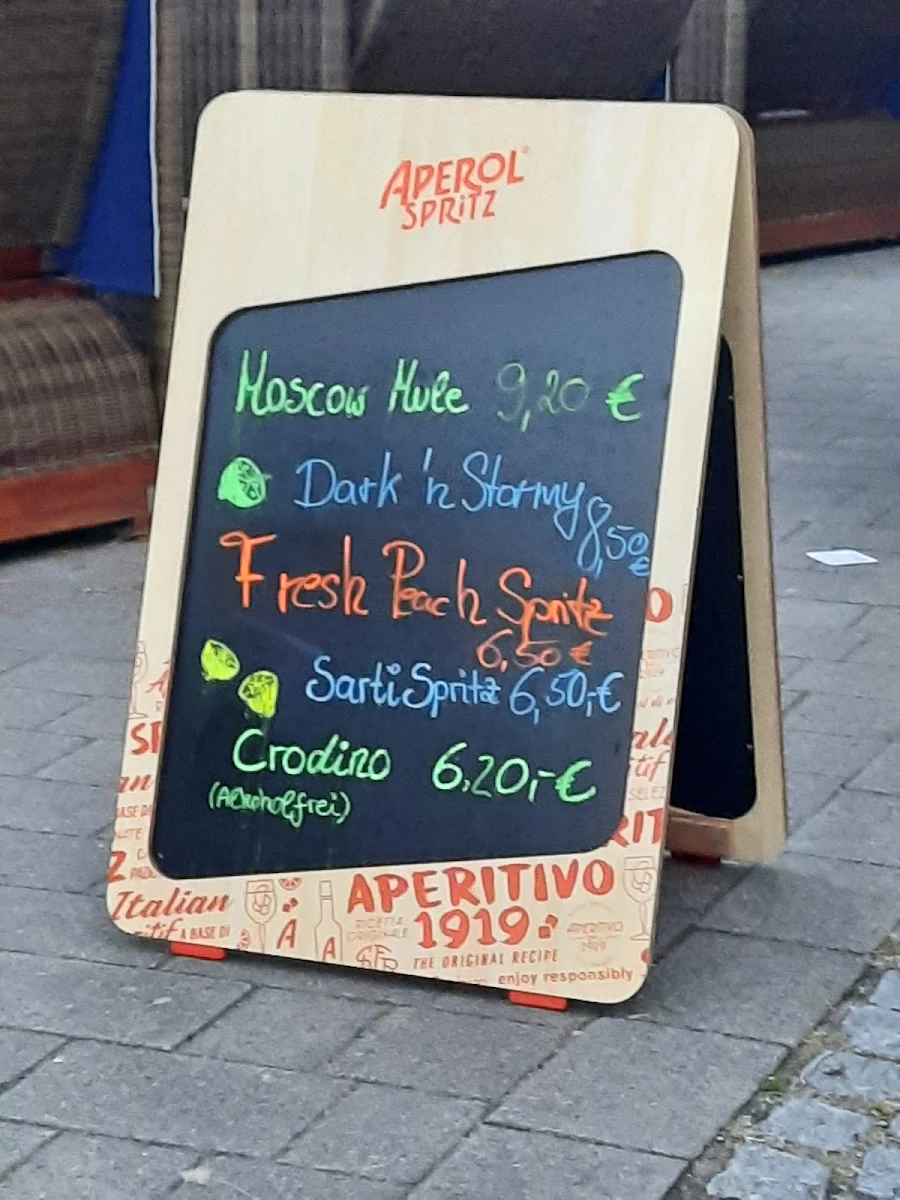 APEROL
SPRITZ
Moscow Mule 9,20 €
Dark 'n Stormy 8,50
€
Fresh Peach Spritz
6,50 €
Sarti Spritz 6,50,-€
Crodino 6,20,-€
(Alkoholfrei)
APERITIVO
1919
RICETTA
ORIGINALE
THE ORIGINAL RECIPE
enjoy responsibly
Italian
A BASE DI
A
A
APERITIVO
1919